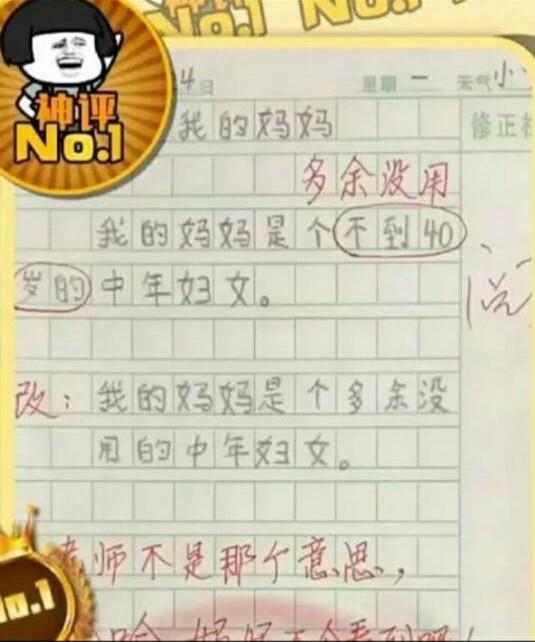 No.1 No.1
神评
No.1
4日 星期一 天气小
我的妈妈
修正栏
多余没用
我的妈妈是个不到40
岁的中年妇女。
改：我的妈妈是个多余没
用的中年妇女。
老师不是那个意思，
No.1